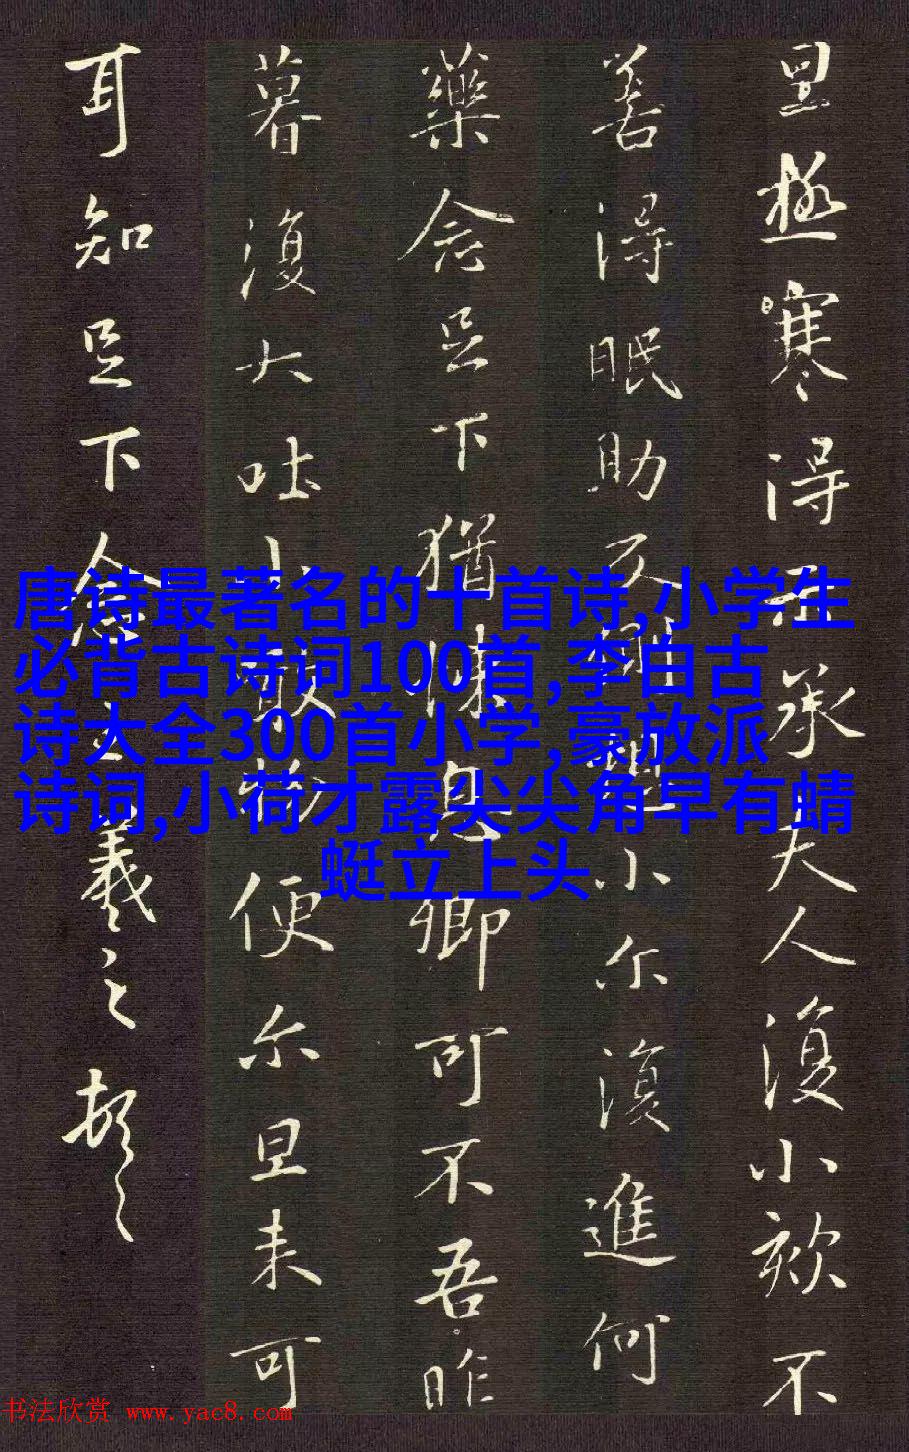 旦極寒得示承夫人復小欬不
善得眠助反側想小尓復進何
藥念足下猶悚息卿可不吾昨
暮復大吐小噉物便尓旦来可
耳知足下念王羲之頓首
唐诗最著名的十首诗,小学生
必背古诗词100首,李白古
诗大全300首小学,豪放派
诗词,小荷才露尖尖角早有蜻
蜓立上头
书法欣赏 www.yac8.com